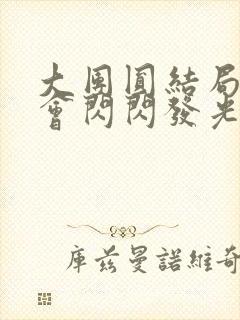 大團圓結局
會閃閃發光
庫茲曼諾維奇